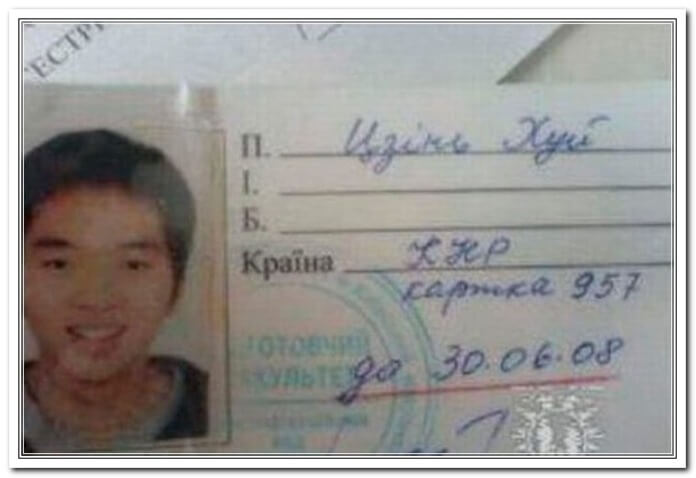 ЕСТРІ
П. Цзінь Хуй
І.
Б.
Країна КНР
картка 957
ОТОВЧИЙ
КУЛЬТЕТ
до 30.06.08